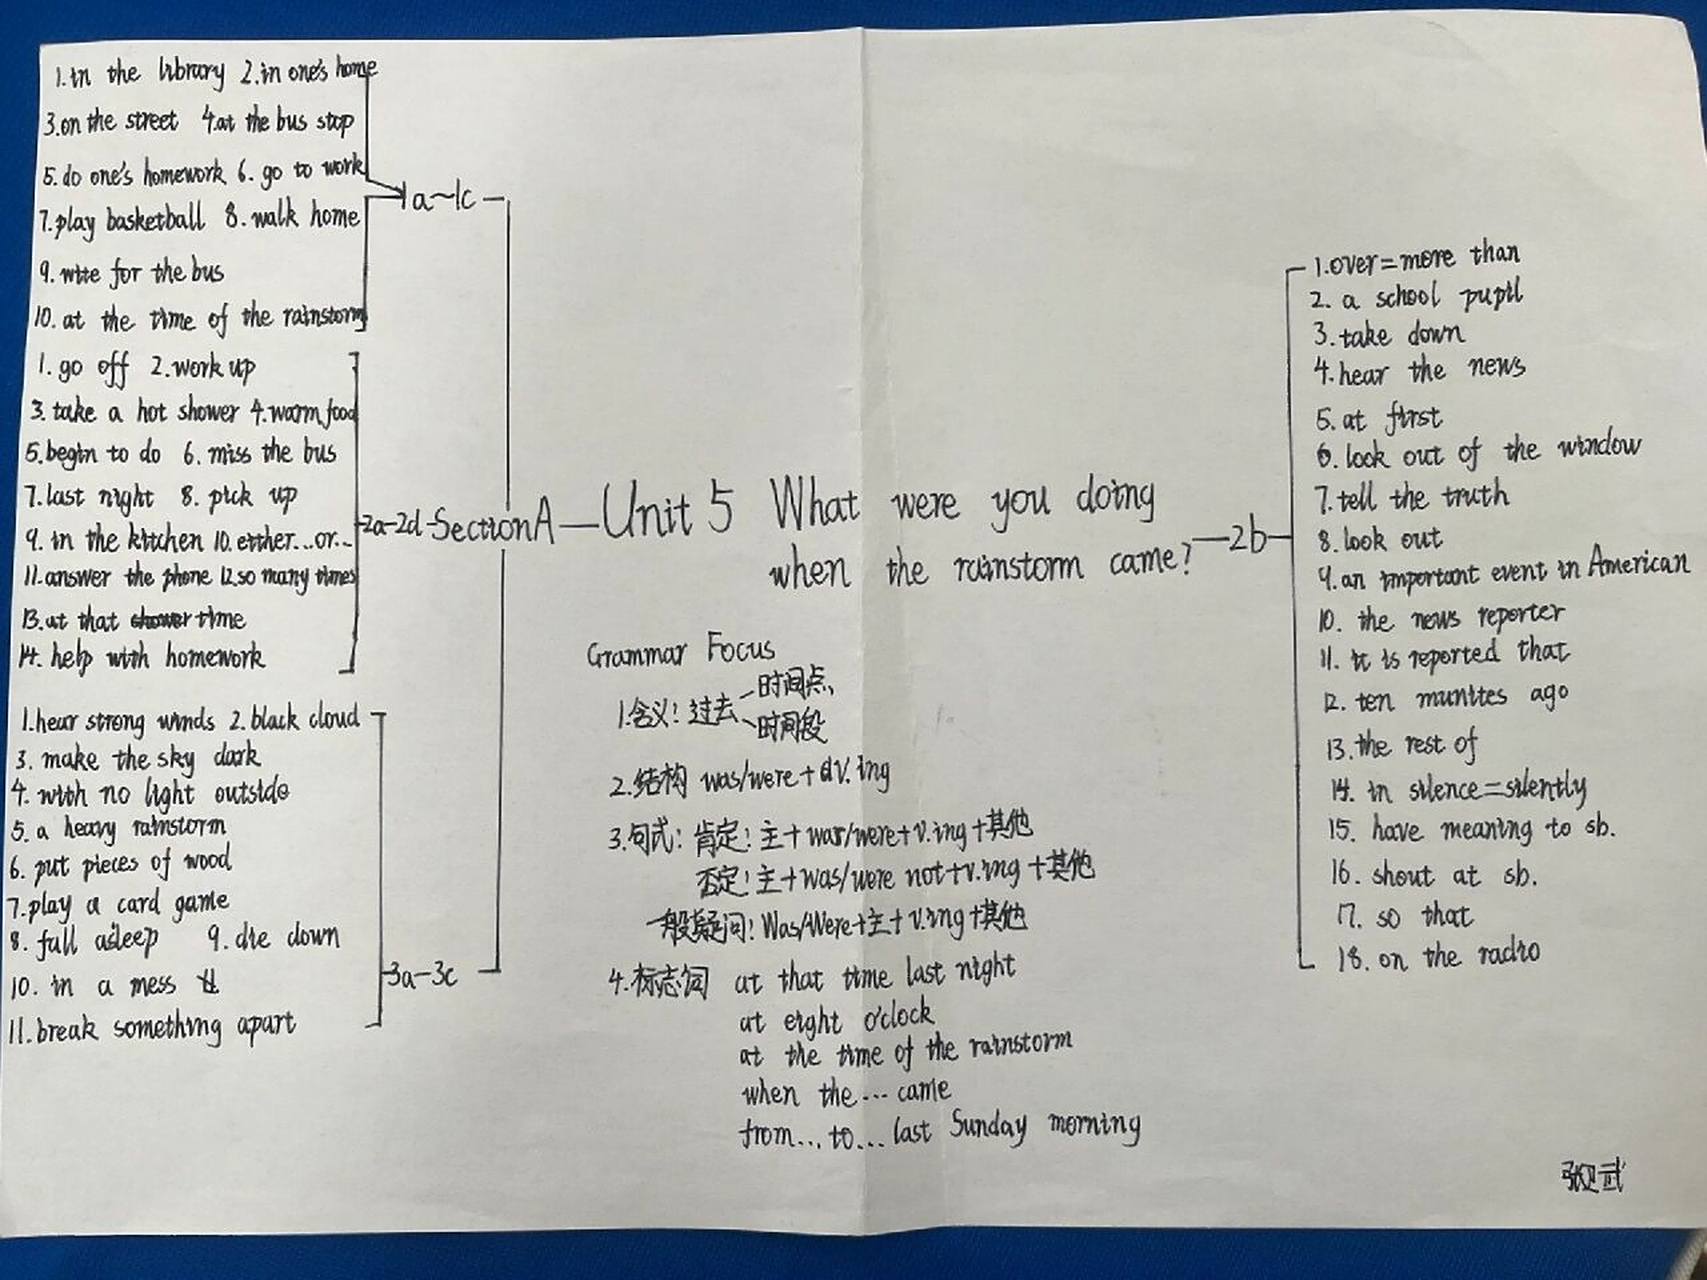 1.in the library 2.in one's home
3.on the street 4.at the bus stop
5.do one's homework 6.go to work
7.play basketball 8.walk home
9.wite for the bus
10.at the time of the rainstorm
1a~1c
1.go off 2.work up
3.take a hot shower 4.warm food
5.begin to do 6.miss the bus
7.last night 8.pick up
9.in the kitchen 10.either...or...
11.answer the phone 12.so many times
13.at that shower time
14.help with homework
2a-2d
Section A
1.hear strong winds 2.black cloud
3.make the sky dark
4.with no light outside
5.a heavy rainstorm
6.put pieces of wood
7.play a card game
8.fall asleep 9.die down
10.in a mess
11.break something apart
3a-3c
Unit 5 What were you doing
when the rainstorm came?
Grammar Focus
1.含义:过去
时间点,
时间段
2.结构 was/were+dv.ing
3.句式:肯定:主+was/were+v.ing+其他
否定:主+was/were not+v.ing+其他
一般疑问:Was/Were+主+v.ing+其他
4.标志词 at that time last night
at eight o'clock
at the time of the rainstorm
when the...came
from...to...last Sunday morning
2b
1.over=more than
2.a school pupil
3.take down
4.hear the news
5.at first
6.look out of the window
7.tell the truth
8.look out
9.an important event in American
10.the news reporter
11.it is reported that
12.ten munites ago
13.the rest of
14.in silence=silently
15.have meaning to sb.
16.shout at sb.
17.so that
18.on the radio